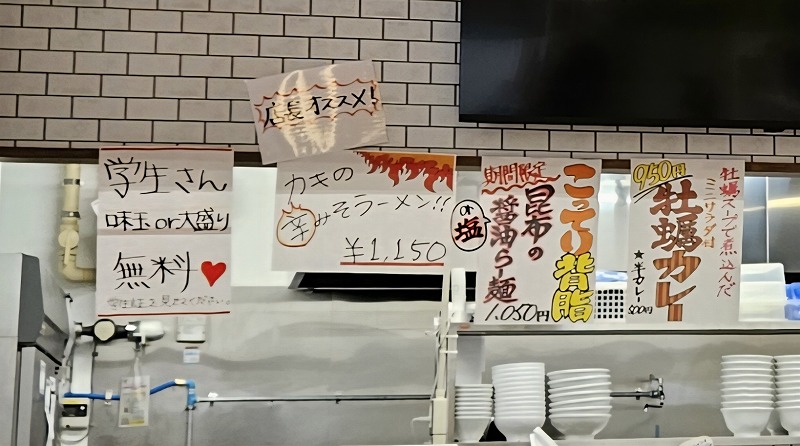 店長オススメ!
学生さん
味玉or大盛り
無料♥
学生証を見せてください。
カキの
辛みそラーメン!!
¥1,150
期間限定
こってり背脂
昆布の
醤油らー麺
or塩
1,050円
牡蠣スープで煮込んだ
ミニサラダ付
950円
牡蠣カレー
★半カレー
500円